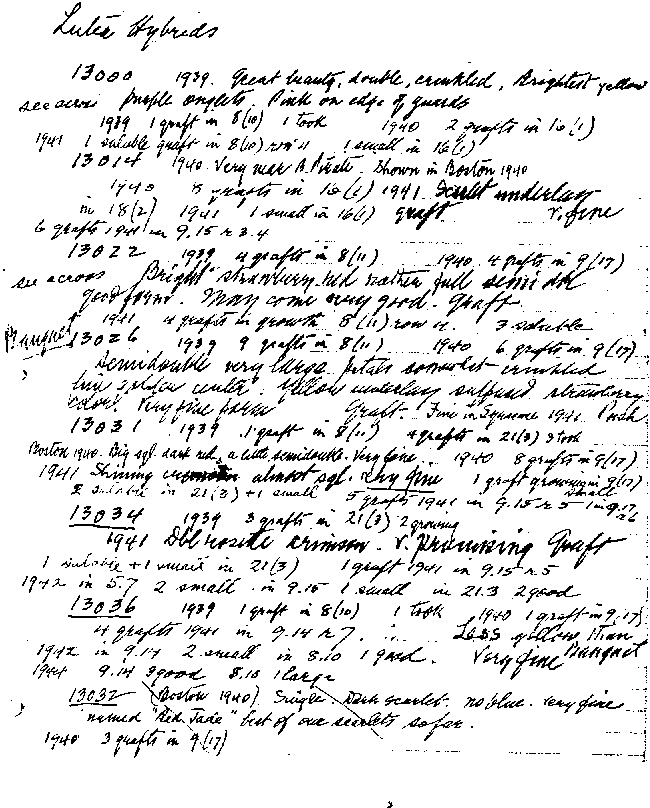 Lutea Hybrids
13000 1939. Great beauty, double, crinkled, Brightest yellow
see across purple anglets. Pink on edge of guards
1939 1 graft in 8(10) 1 took 1940 2 grafts in 16(1)
1941 1 salable graft in 8(10) row 4 1 small in 16(1)
13014 1940 Very near B. Pirate. Shown in Boston 1940
1940 8 grafts in 16(1) 1941 Scarlet underlay
in 18(2) 1941 1 small in 16(1) graft V. fine
6 grafts 1941 in 9.15 r 3.4
13022 1939 4 grafts in 8(11) 1940 4 grafts in 9(17)
see across Bright strawberry red rather full semi dbl
good form. May come very good. Graft
1941 4 grafts in growth 8(11) row 3 salable
Banquet 13026 1939 9 grafts in 8(11) 1940 6 grafts in 9(17)
Semidouble very large petals somewhat crinkled
fine golden center. Yellow underlay suffused strawberry
color. Very fine form Graft. Fine in Squeeme 1941 Push
13031 1939 1 graft in 8(11) 4 grafts in 21(3) 3 took
Boston 1940. Big sgl. dark red, a little semidouble. Very fine. 1940 8 grafts in 9(17)
1941 Shining almost sgl. very fine 1 graft growing in 9(17)
2 salable in 21(3) + 1 small 5 grafts 1941 in 9.15 r 5 small in 9.17
13034 1939 3 grafts in 21(3) 2 growing
1941 Dbl rosette crimson. V. Promising Graft
1 salable + 1 small in 21(3) 1 graft 1941 in 9.15 r 5
1942 in 5.7 2 small in 9.15 1 small in 21.3 2 good
13036 1939 1 graft in 8(10) 1 took 1940 1 graft in 9(17)
4 grafts 1941 in 9.14 r 7. Less yellow than
1942 in 9.14 2 small in 8.10 1 good. Very fine Banquet
1944 9.14 3 good 8.10 1 large
13032 (Boston 1940) Single. Dark scarlet, no blue. very fine
named "Red Jade" best of our scarlets so far.
1940 3 grafts in 9(17)